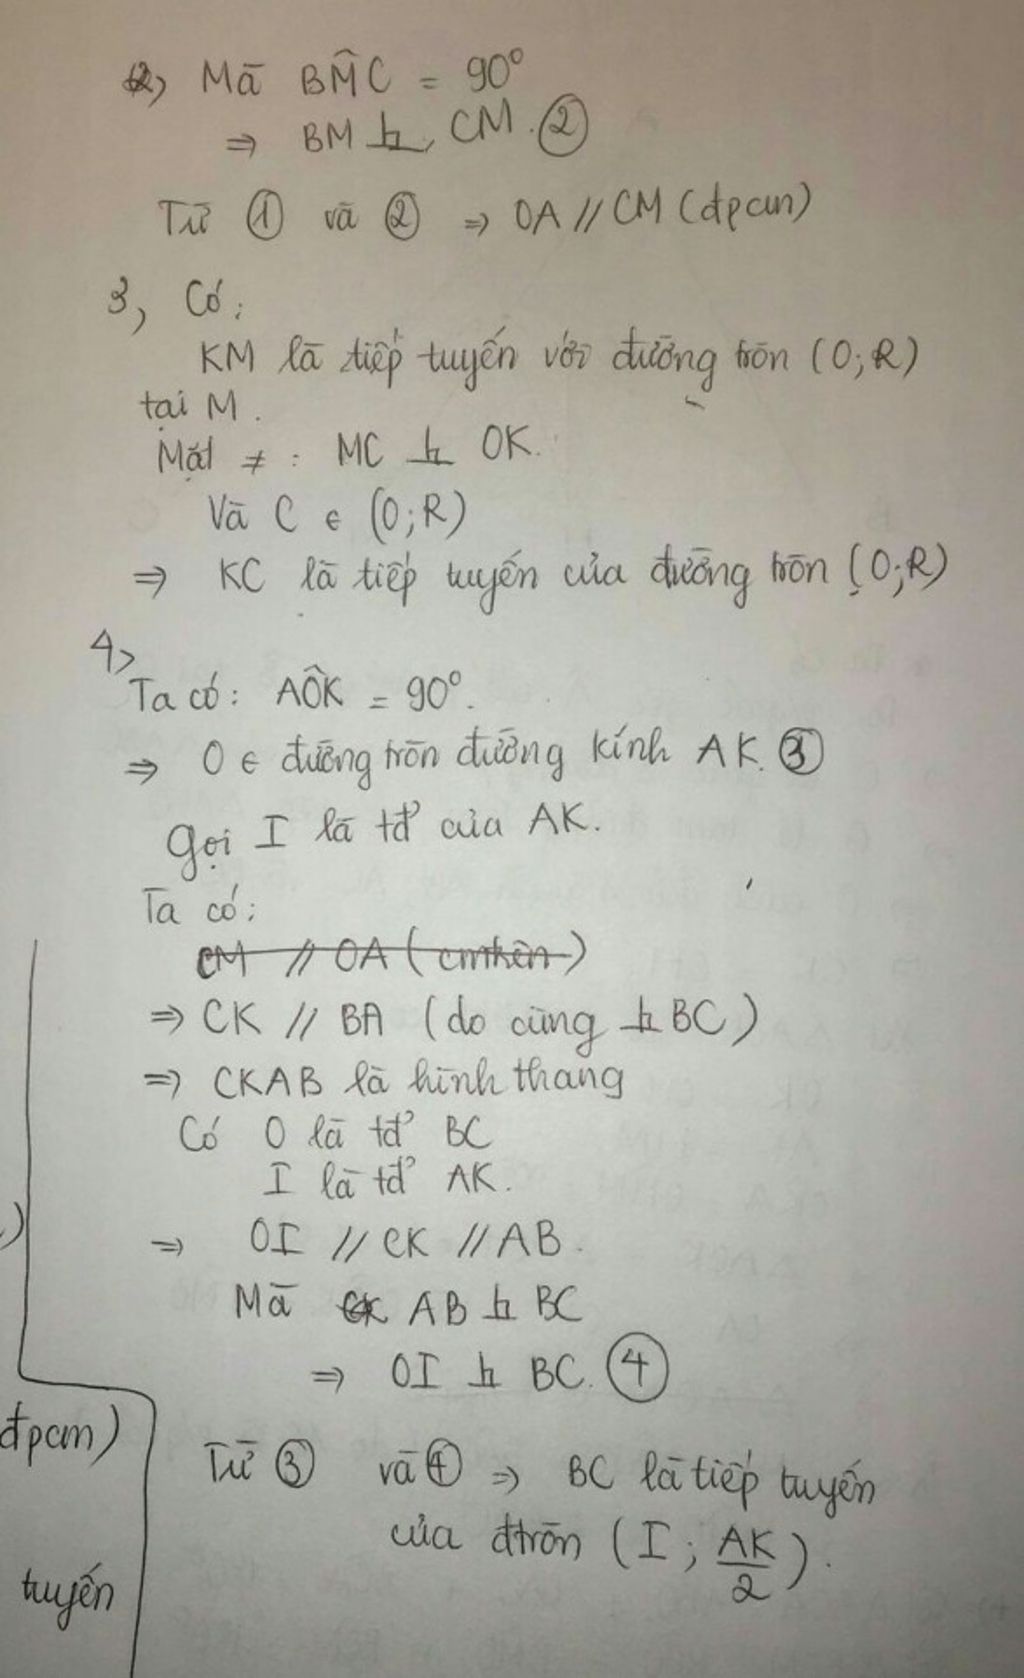 2, Mà BM̂C = 90°
⇒ BM ⊥ CM. ②
Từ ① và ② ⇒ OA // CM (đpcm)
3, Có:
KM là tiếp tuyến với đường tròn (O;R)
tại M.
Mặt ≠ : MC ⊥ OK.
Và C ∈ (O;R)
⇒ KC là tiếp tuyến của đường tròn (O;R)
4,
Ta có: AÔK = 90°.
⇒ O ∈ đường tròn đường kính AK. ③
Gọi I là tđ' của AK.
Ta có:
CM // OA (cmtrên)
⇒ CK // BA (do cùng ⊥ BC)
⇒ CKAB là hình thang
Có O là tđ' BC
I là tđ' AK.
⇒ OI // CK // AB.
Mà CK AB ⊥ BC
⇒ OI ⊥ BC. ④
Từ ③ và ④ ⇒ BC là tiếp tuyến
của đtròn (I; AK/2).
)
đpcm)
tuyến